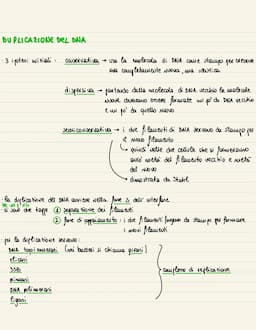 DUPLICAZIONE DEL DNA
· 3 ipotesi iniziali: conservativa → usa la molecola di DNA come stampo per crearne
una completamente nuova, una identica
dispersiva → partendo dalla molecola di DNA vecchio le molecole
nuove dovranno essere formate un po' da DNA vecchio
e un po' da quello nuovo
semiconservativa → i due filamenti di DNA servono da stampo per
il nuovo filamento
→ quindi nelle due cellule che si formeranno
avrò metà del filamento vecchio e metà
del nuovo
→ dimostrata da Stahl
· la duplicazione del DNA avviene nella fase S dell'interfase
si può dire tappe ① separazione dei filamenti
② fase di i due filamenti fungono da stampo per formare
i nuovi filamenti
· per la duplicazione servono:
DNA topoisomerasi (nei batteri si chiama girasi)
elicasi
SSB
primasi
DNA polimerasi
ligasi
complesso di replicazione